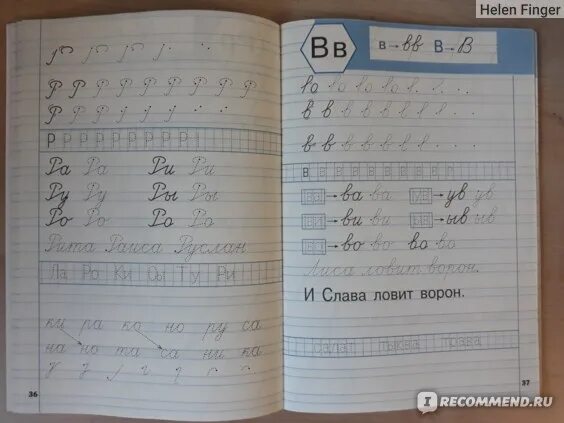 Helen Finger
Р Р Р Р Р Р Р Р Р
Р Р
Р Р Р Р Р Р Р Р Р
Ра Ра Ри Ри
Ру Ру Ры Ры
Ро Ро Ро Ро
Рита Раиса Руслан
Ла Ро Ки Ри
ки ра ко но ру са
на но та са ни ка
36
В в
в → вв В → В
в в в в в в в в
ва → ва ва ув → ув ув
ви → ви ви ыв → ыв ыв
во → во во во во
Лиса ловит ворон.
И Слава ловит ворон.
салат тыква трава
37
IRECOMMEND.RU